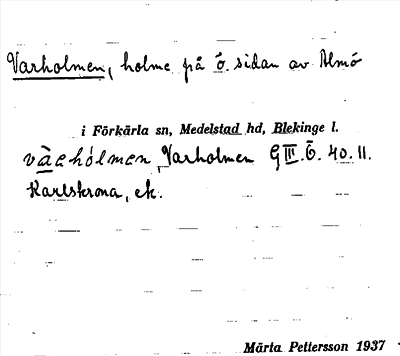 Varholmen, holme på ö. sidan av Almö
i Förkärla sn, Medelstad hd, Blekinge l.
Varholmen G III. Ö. 40. 11.
Karlskrona, ek.
Märta Pettersson 1937